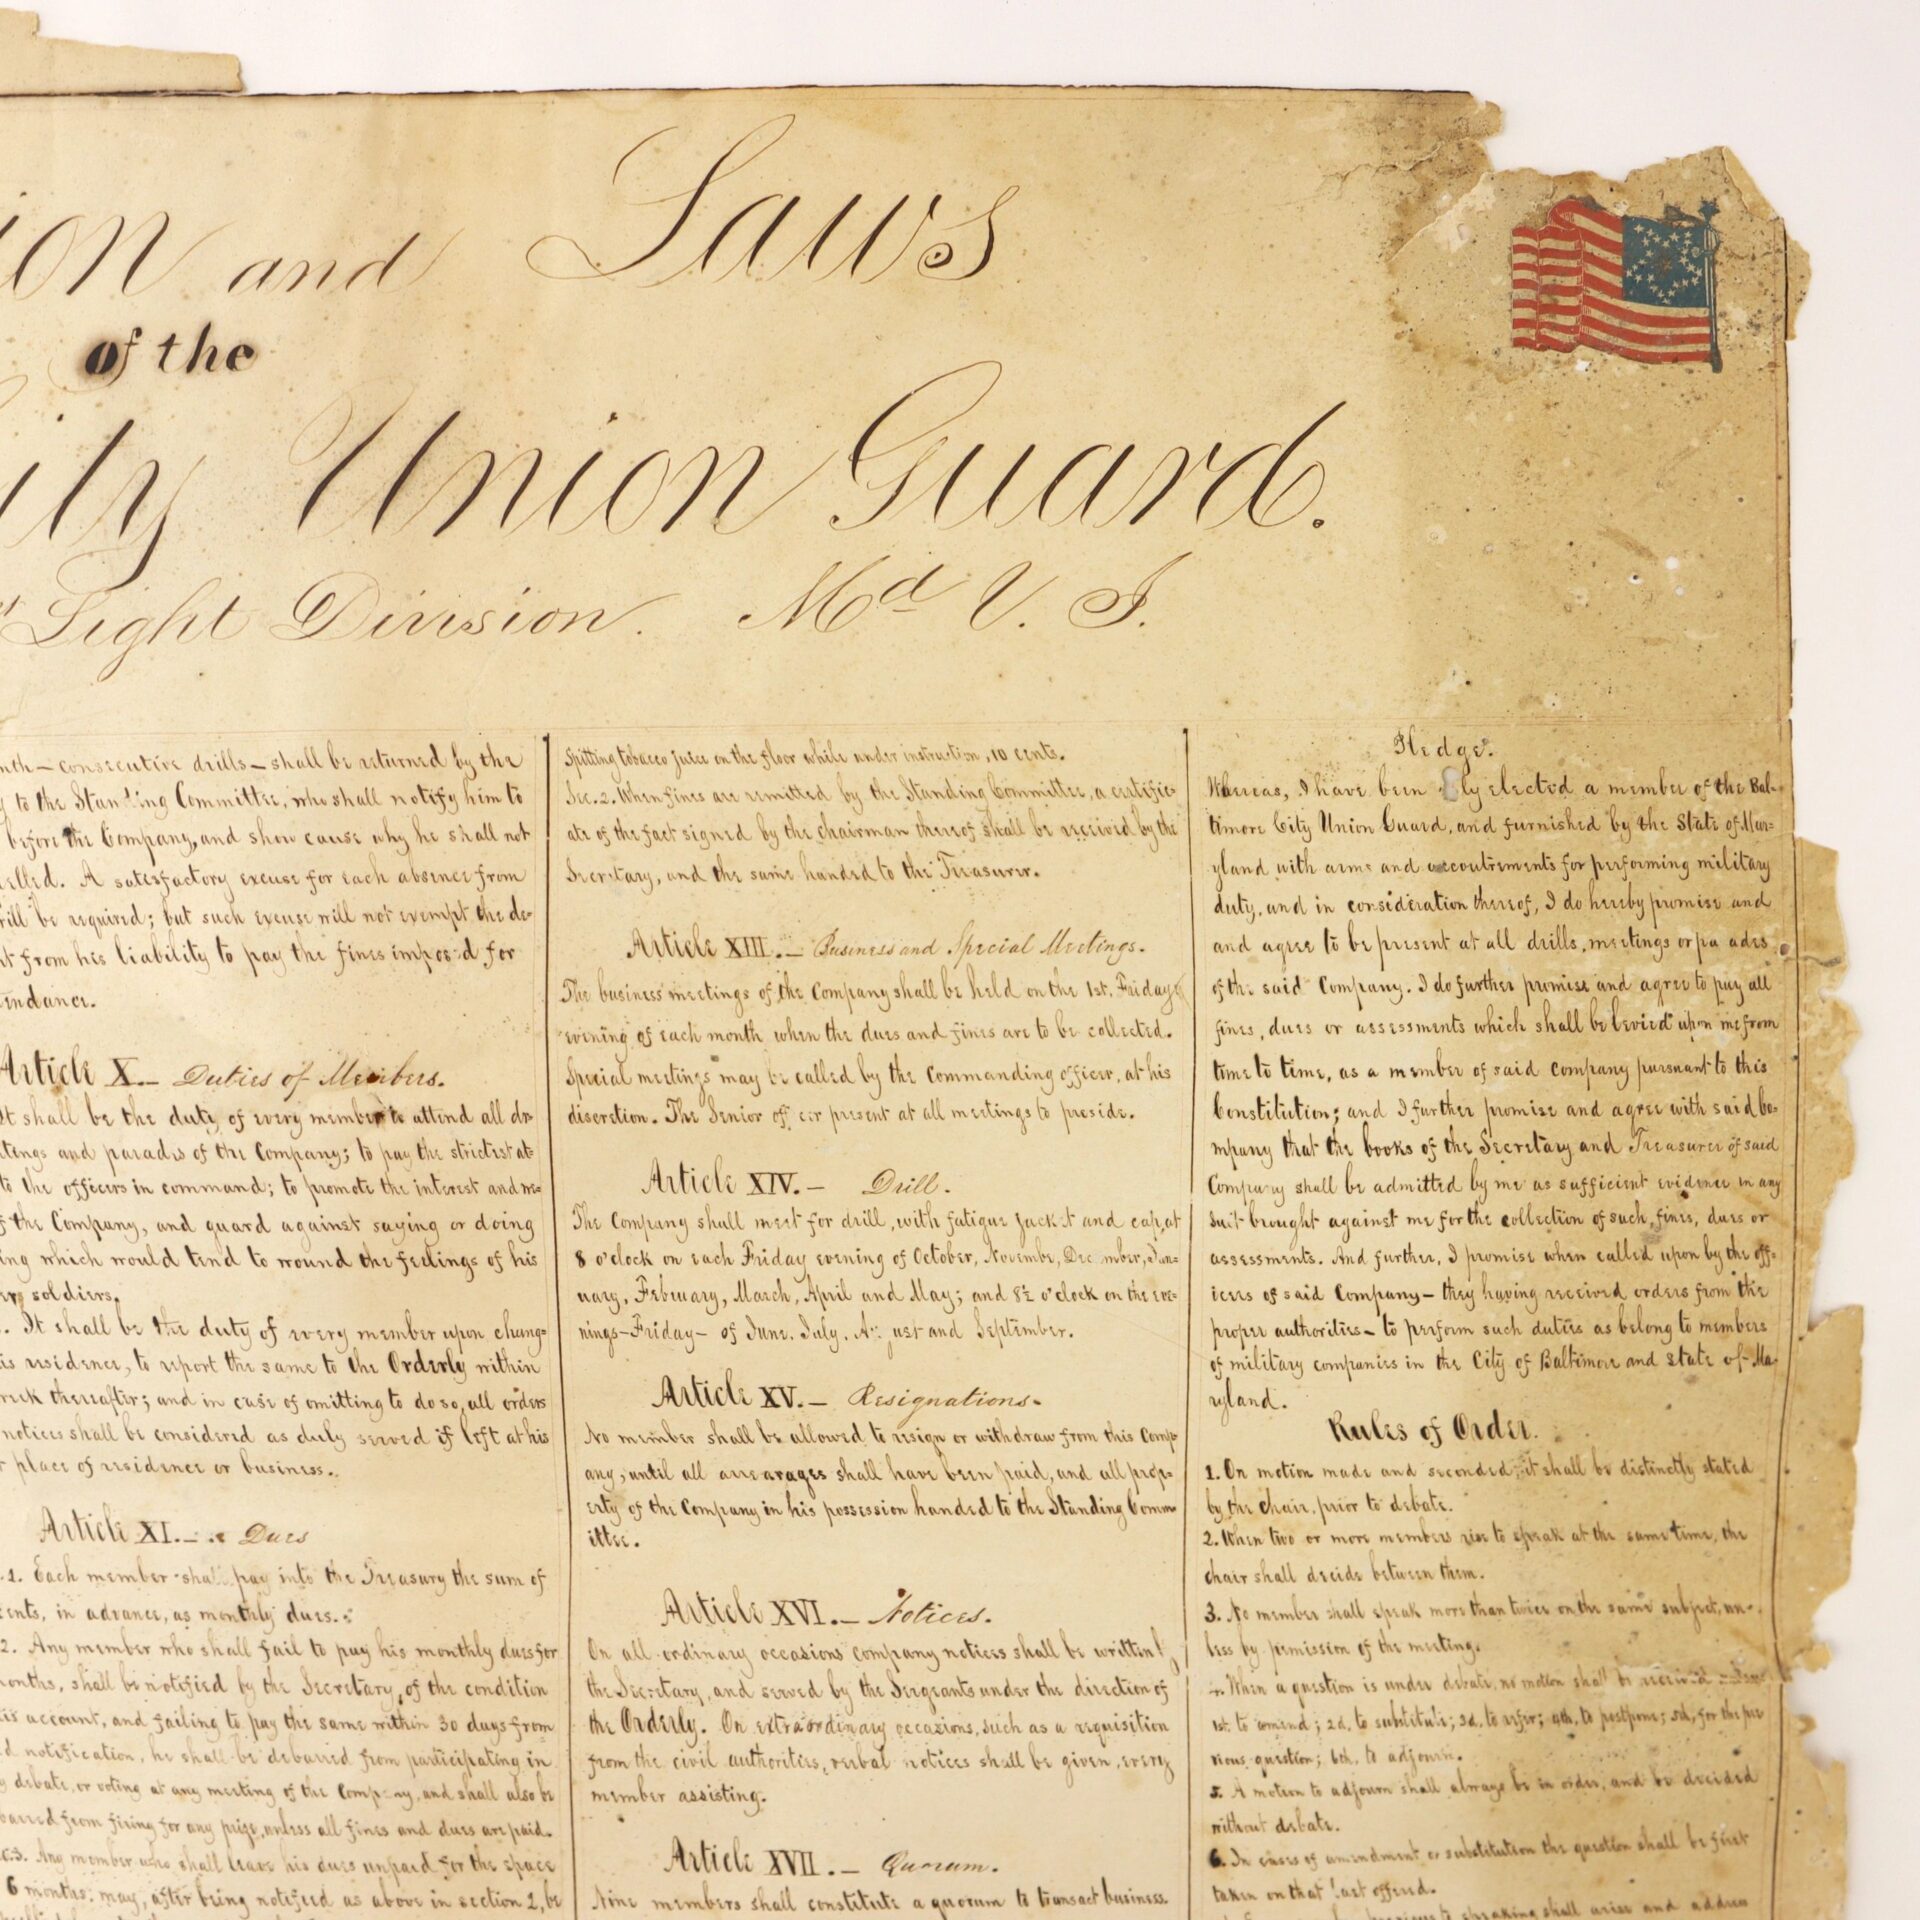 ion and Laws
of the
ity Union Guard.
Light Division. Md V. I.
nth — consecutive drills — shall be returned by the
y to the Standing Committee, who shall notify him to
before the Company, and show cause why he shall not
elled. A satesfactory excuse for each absence from
rill be required; but such excuse will not exempt the de=
nt from his liability to pay the fines imposed for
endance.
Article X.— Duties of Members.
It shall be the duty of every member to attend all dr=
etings and parades of the Company; to pay the strictest at=
to the officers in command; to promote the interest and we=
f the Company, and guard against saying or doing
ing which would tend to wound the feelings of his
er soldiers.
. It shall be the duty of every member upon chang=
is residence, to report the same to the Orderly within
reek thereafter; and in case of omitting to do so, all orders
notices shall be considered as duly served if left at his
r place of residence or business.
Article XI.— Dues
.1. Each member shall pay into the Treasury the sum of
cents, in advance, as monthly dues.
2. Any member who shall fail to pay his monthly dues for
months, shall be notified by the Secretary, of the condition
is account, and failing to pay the same within 30 days from
d notification, he shall be debarred from participating in
y debate, or voting at any meeting of the Company, and shall also be
barred from firing for any prize, unless all fines and dues are paid.
ec.3. Any member who shall leave his dues unpaid for the space
6 months; may, after being notified as above in section 2, be
Spitting tobacco juice on the floor while under instruction, 10 cents.
Sec. 2. When fines are remitted by the Standing Committee, a certific=
ate of the fact signed by the chairman thereof shall be received by the
Secretary, and the same handed to the Treasurer.
Article XIII.— Business and Special Meetings.
The business meetings of the Company shall be held on the 1st. Friday
evening of each month when the dues and fines are to be collected.
Special meetings may be called by the Commanding officer, at his
discretion. The Senior officer present at all meetings to preside.
Article XIV.— Drill.
The Company shall meet for drill, with fatigue jacket and cap, at
8 o'clock on each Friday evening of October, Novembe, December, Jan=
uary, February, March, April and May; and 8½ o'clock on the eve=
nings—Friday— of June, July, August and September.
Article XV.— Resignations.
No member shall be allowed to resign or withdraw from this Comp=
any, until all arrearages shall have been paid, and all prop=
erty of the Company in his possession handed to the Standing Comm
ittee.
Article XVI.— Notices.
On all ordinary occasions company notices shall be written
the Secretary, and served by the Sergeants under the direction of
the Orderly. On extraordinary occasions, such as a requisition
from the civil authorities, verbal notices shall be given, every
member assisting.
Article XVII.— Quorum.
Nine members shall constitute a quorum to transact business
Pledge.
Whereas, I have been elected a member of the Bal=
timore City Union Guard, and furnished by the State of Mar=
yland with arms and accoutrements for performing military
duty, and in consideration thereof, I do hereby promise and
and agree to be present at all drills, meetings or parades
of the said Company. I do further promise and agree to pay all
fines, dues or assessments which shall be levied upon me from
time to time, as a member of said Company pursuant to this
Constitution; and I further promise and agree with said Co=
mpany that the books of the Secretary and Treasurer of said
Company shall be admitted by me as sufficient evidence in any
suit brought against me for the collection of such fines, dues or
assessments. And further, I promise when called upon by the off=
icers of said Company— they having received orders from the
proper authorities— to perform such duties as belong to members
of military companies in the City of Baltimore and State of Ma
ryland.
Rules of Order.
1. On motion made and seconded, it shall be distinctly stated
by the chair, prior to debate.
2. When two or more members rise to speak at the same time, the
chair shall decide between them.
3. No member shall speak more than twice on the same subject, un=
less by pemission of the meeting.
When a question is under debate, no motion shall be received
1st. to amend; 2d, to substitute; 3d, to refer; 4th, to postpone; 5th, for the pre
vious question; 6th, to adjourn.
5. A motion to adjourn shall always be in order, and be decided
without debate.
6. In cases of amendment or substitution the question shall be first
taken on that last offered.
speaking shall arise and address